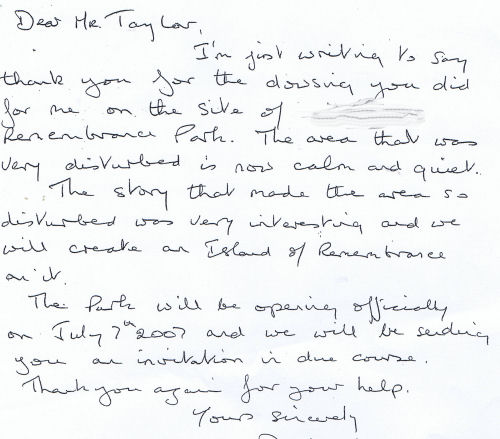 Dear Mr. Taylor,
I'm just writing to say
thank you for the dowsing you did
for me on the site of
Remembrance Park. The area that was
very disturbed is now calm and quiet.
The story that made the area so
disturbed was very interesting and we
will create an Island of Remembrance
on it.
The Park will be opening officially
on July 7th 2007 and we will be sending
you an invitation in due course.
Thank you again for your help.
Yours sincerely